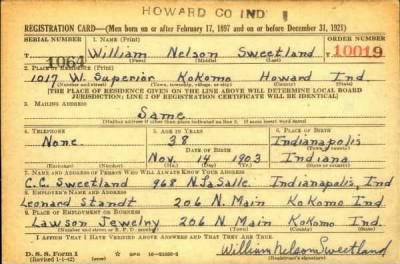 HOWARD CO IND
REGISTRATION CARD—(Men born on or after February 17, 1897 and on or before December 31, 1921)
SERIAL NUMBER 1. NAME (Print) ORDER NUMBER
T 1064 William Nelson Sweetland T 10019
(First) (Middle) (Last)
2. PLACE OF RESIDENCE (Print)
1017 W. Superior Kokomo Howard Ind.
(Number and street) (Town, township, village, or city) (County) (State)
[THE PLACE OF RESIDENCE GIVEN ON THE LINE ABOVE WILL DETERMINE LOCAL BOARD
JURISDICTION; LINE 2 OF REGISTRATION CERTIFICATE WILL BE IDENTICAL]
3. MAILING ADDRESS
Same
[Mailing address if other than place indicated on line 2. If same insert word same]
4. TELEPHONE 5. AGE IN YEARS 6. PLACE OF BIRTH
None. 38 Indianapolis
DATE OF BIRTH (Town or county)
Nov. 14 1903 Indiana
(Exchange) (Number) (Mo.) (Day) (Yr.) (State or country)
7. NAME AND ADDRESS OF PERSON WHO WILL ALWAYS KNOW YOUR ADDRESS
C.C. Sweetland 968 N. LaSalle. Indianapolis, Ind
8. EMPLOYER'S NAME AND ADDRESS
Leonard Standt 206 N. Main Kokomo Ind
9. PLACE OF EMPLOYMENT OR BUSINESS
Lawson Jewelry 206 N. Main Kokomo Ind.
(Number and street or R. F. D. number) (Town) (County) (State)
I AFFIRM THAT I HAVE VERIFIED ABOVE ANSWERS AND THAT THEY ARE TRUE.
D. S. S. Form 1 GPO William Nelson Sweetland
(Revised 1-1-42) (over) (Registrant's signature)